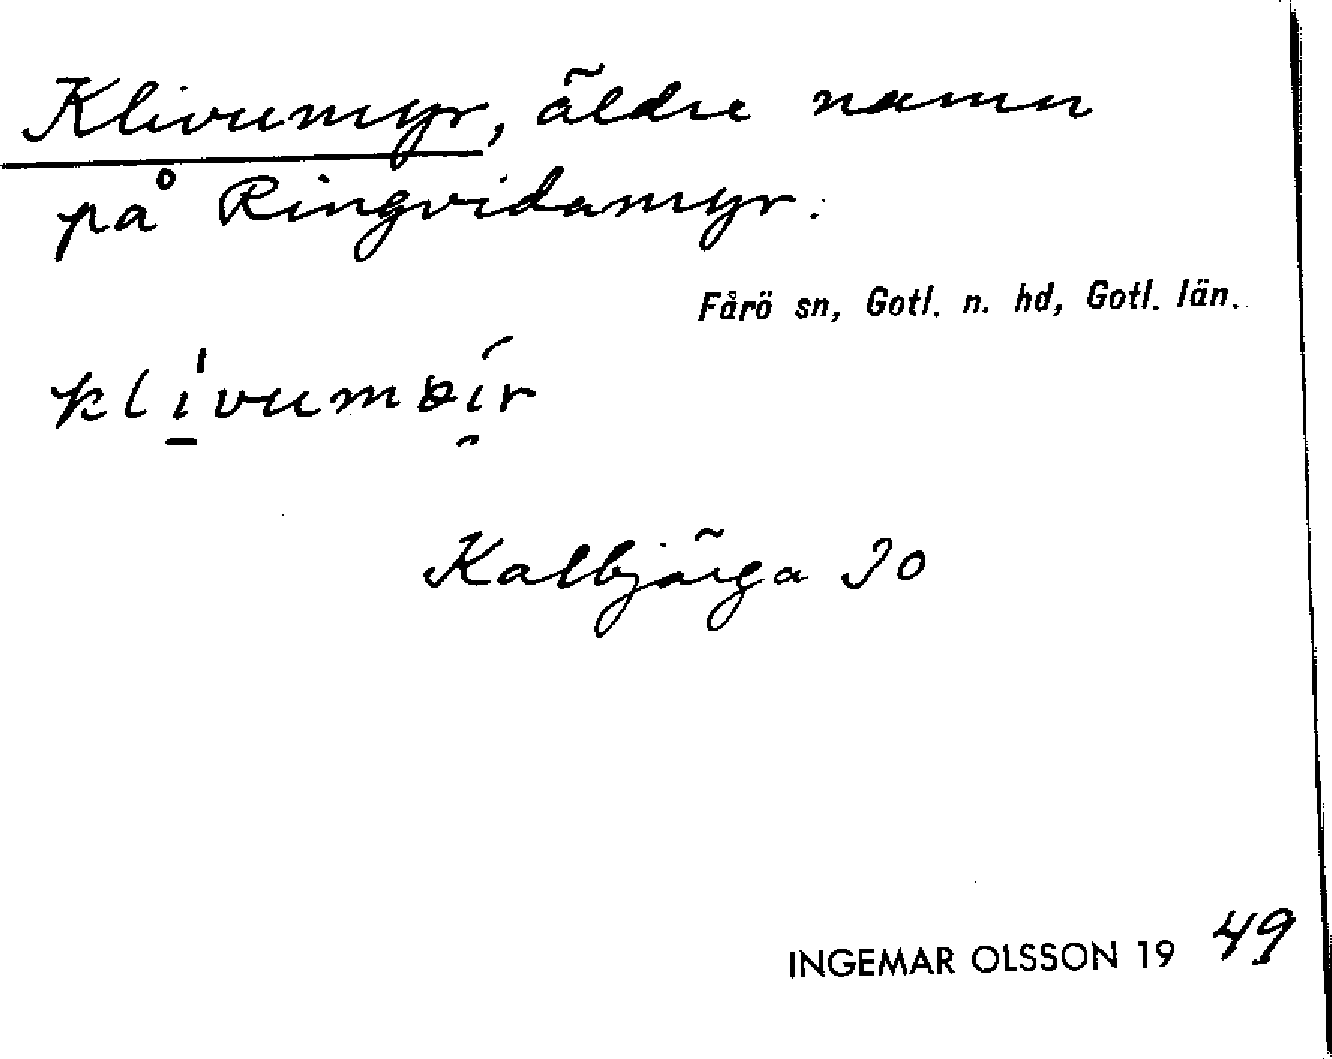 Klivumyr, äldre namn
på Ringvidamyr.
Fårö sn, Gotl. n. hd, Gotl. län.
Kalbjärga Jo
INGEMAR OLSSON 1949